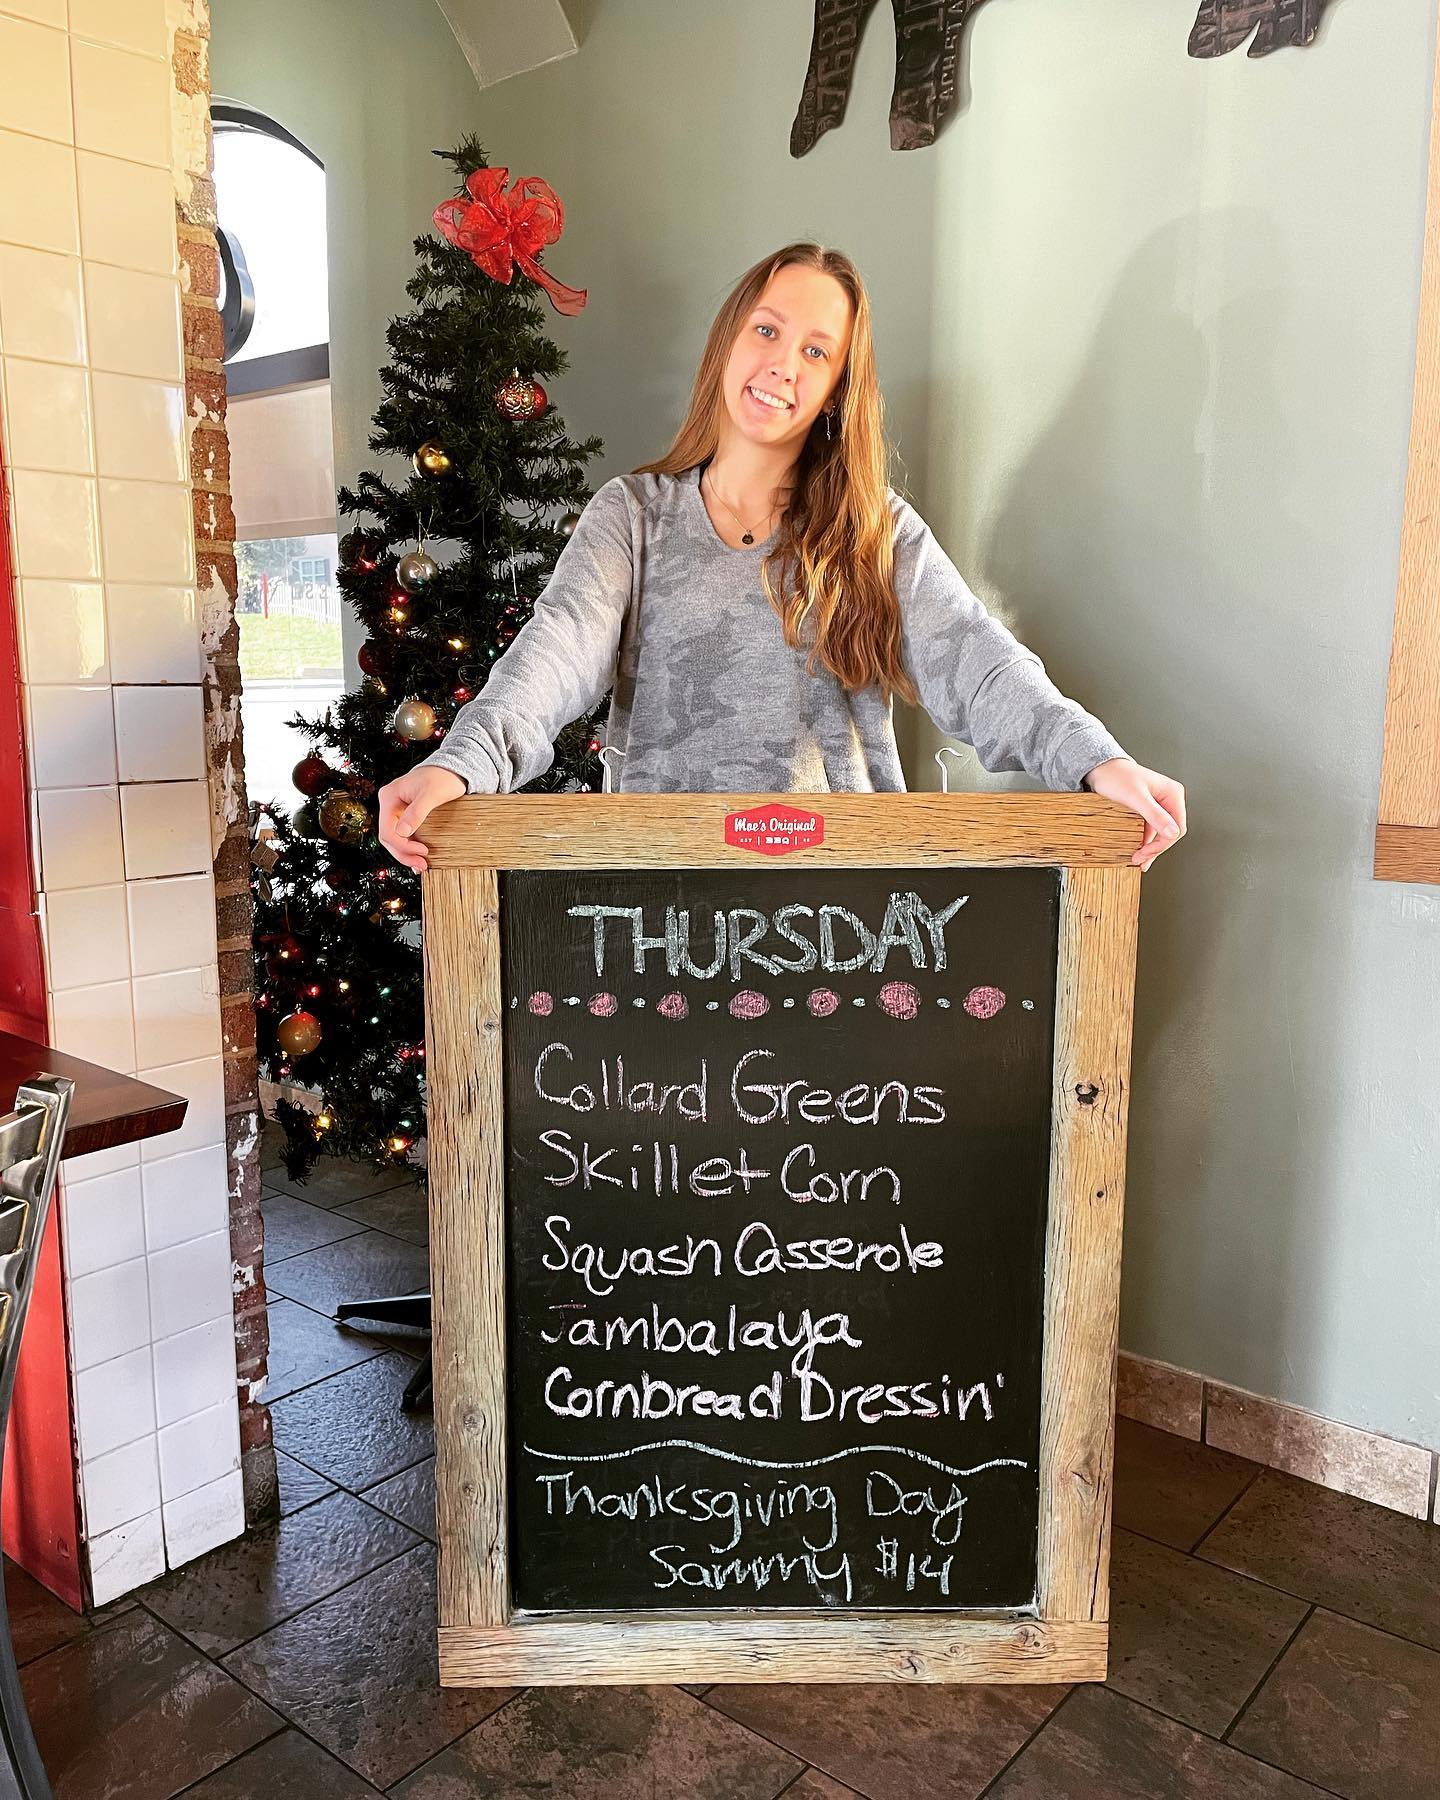 Moe's Original
BBQ
THURSDAY
Collard Greens
Skillet Corn
Squash Casserole
Jambalaya
Cornbread Dressin'
Thanksgiving Day
Sammy $14